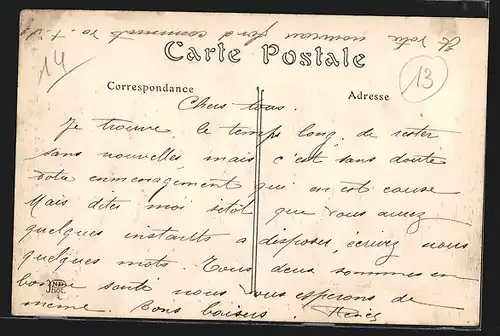 Et votre nouveau comment va-t-il
Carte Postale
14
13
Correspondance
Adresse
Chers tous.
Je trouve le temps long de rester
sans nouvelles, mais c'est sans doute
votre emmenagement qui en est cause
Mais dites moi sitôt que vous aurez
quelques instants a disposer, écrivez nous
quelques mots. Tous deux sommes en
bonne santé nous vous esperons de
même. Bons baisers
ND
Phot.